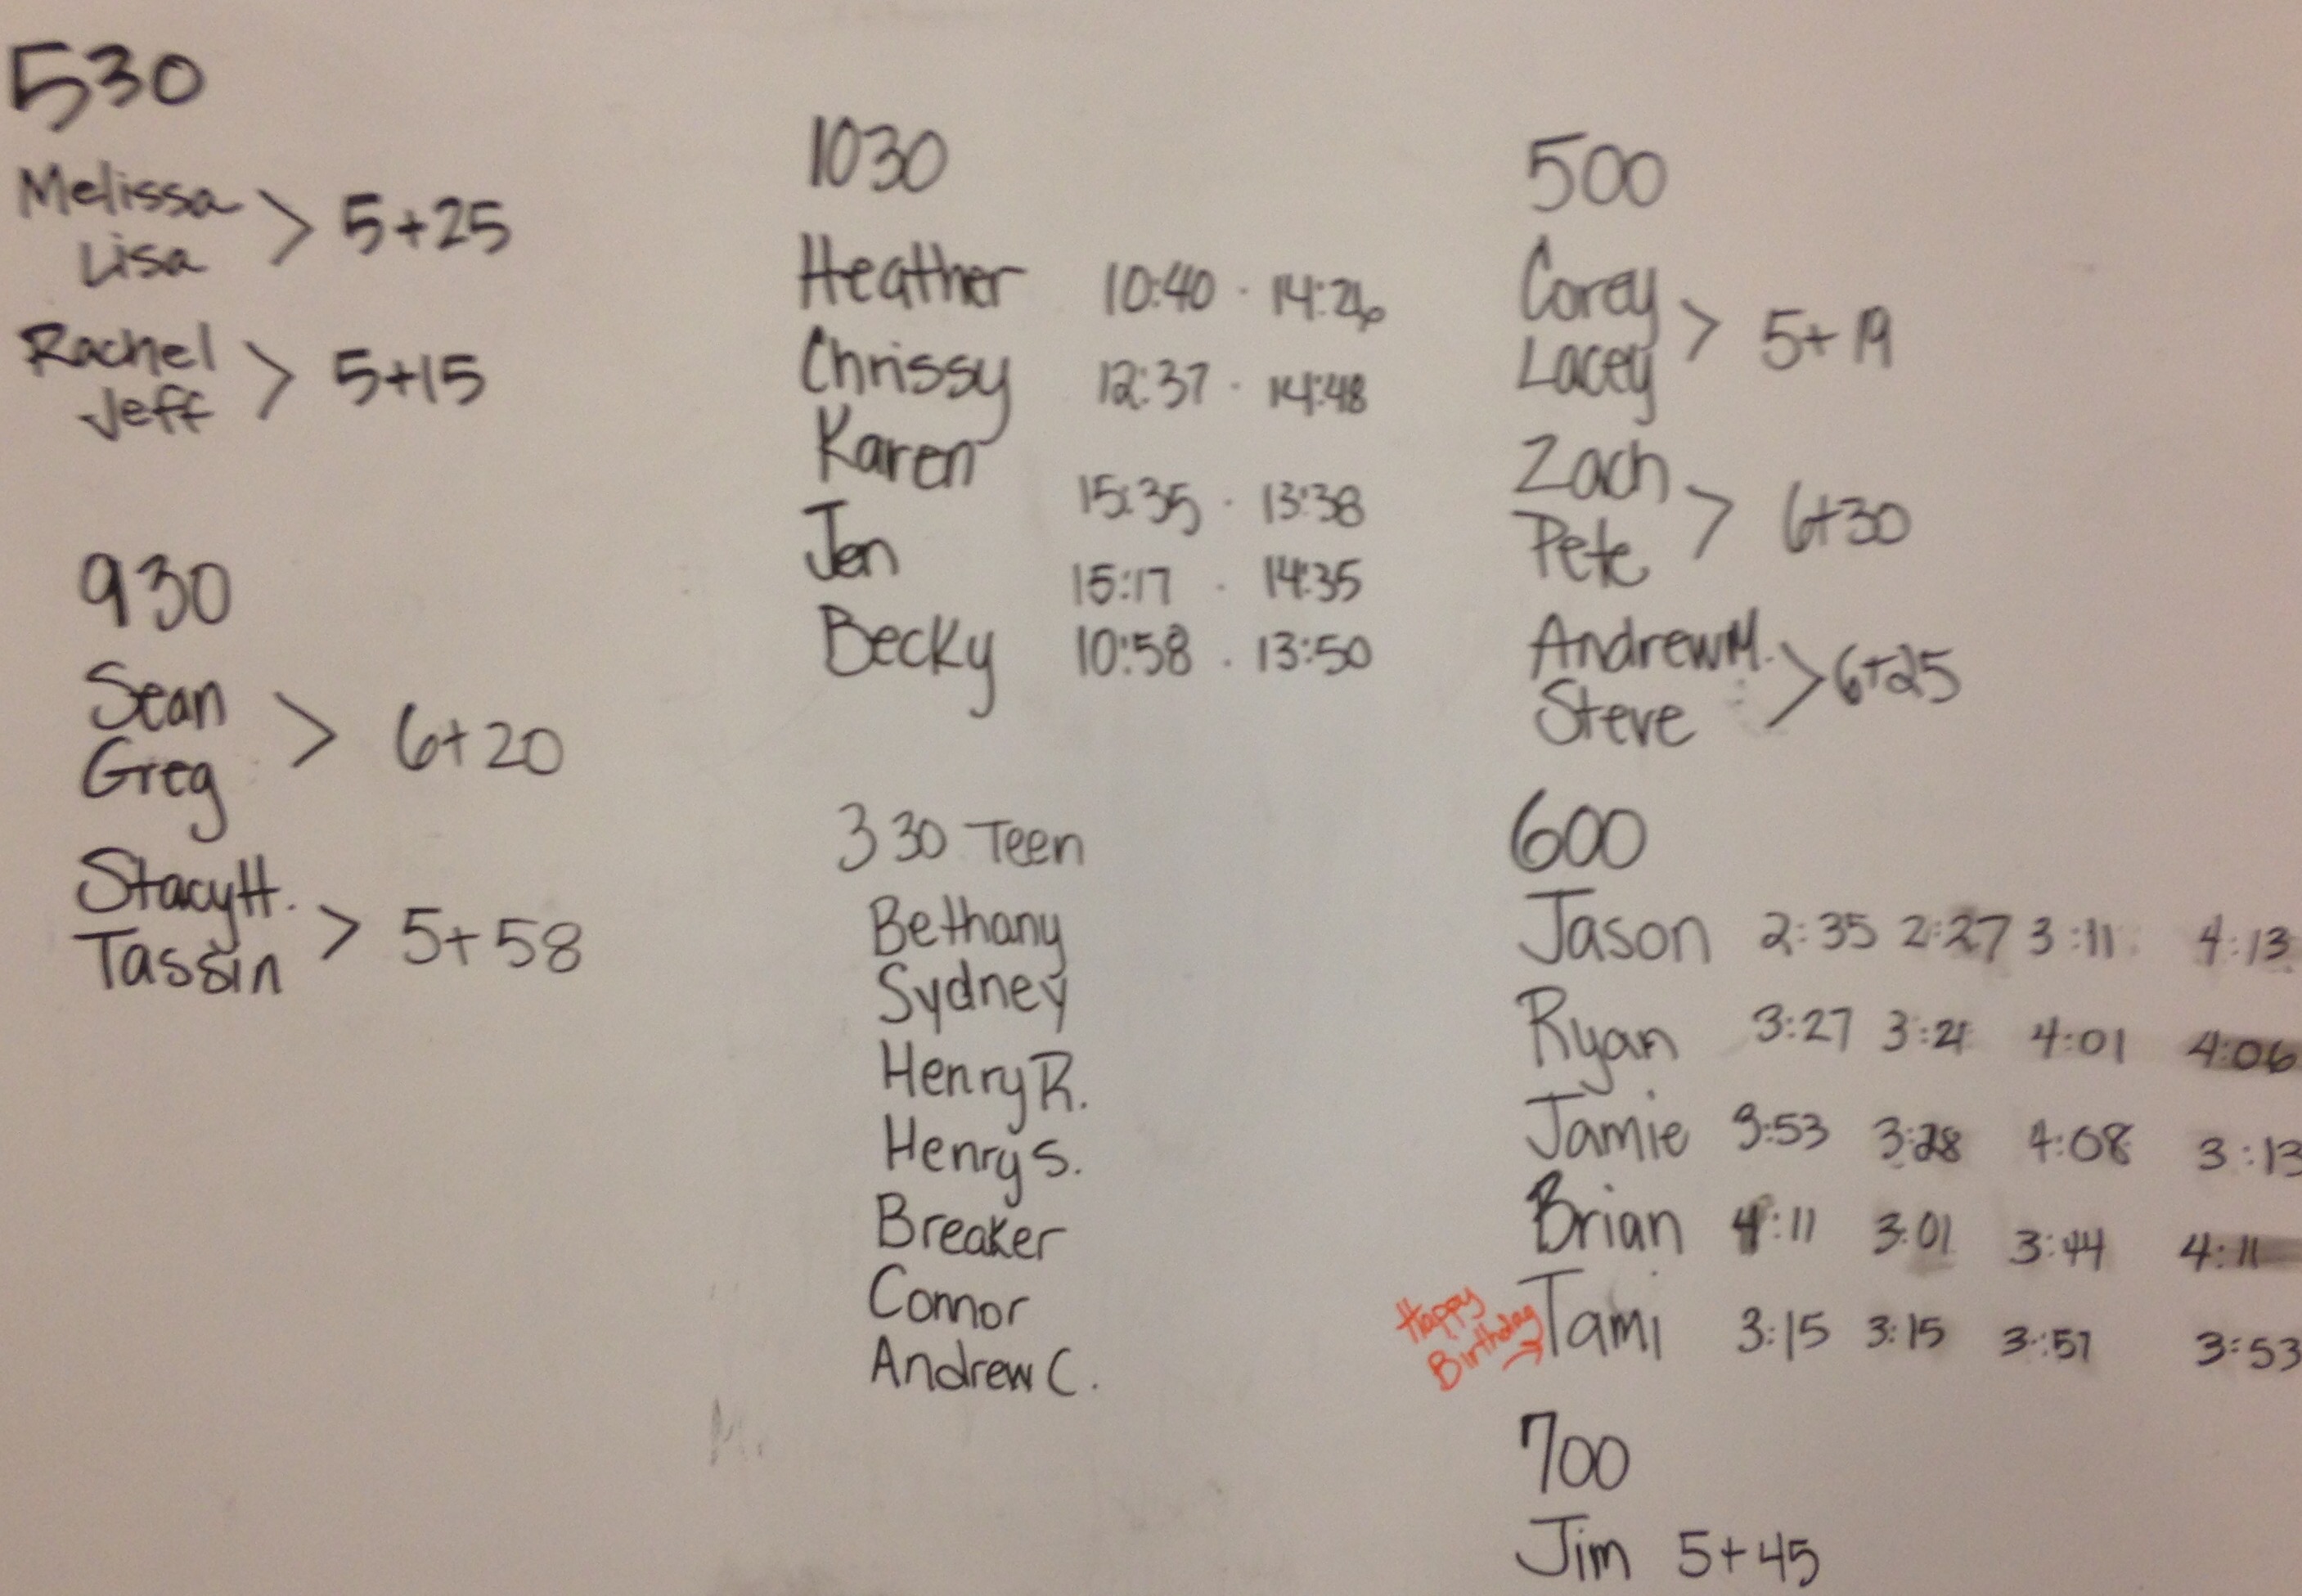 530
Melissa
Lisa > 5+25
Rachel
Jeff > 5+15
930
Sean
Greg > 6+20
Stacy H.
Tassin > 5+58
1030
Heather 10:40 · 14:26
Chrissy 12:37 · 14:48
Karen 15:35 · 13:38
Jen 15:17 · 14:35
Becky 10:58 · 13:50
330 Teen
Bethany
Sydney
Henry R.
Henry S.
Breaker
Connor
Andrew C.
500
Corey
Lacey > 5+19
Zach
Pete > 6+30
Andrew M.
Steve > 6+25
600
Jason 2:35 2:27 3:11 4:13
Ryan 3:27 3:21 4:01 4:06
Jamie 3:53 3:28 4:08 3:13
Brian 4:11 3:01 3:44 4:11
Happy
Birthday →
Tami 3:15 3:15 3:51 3:53
700
Jim 5+45